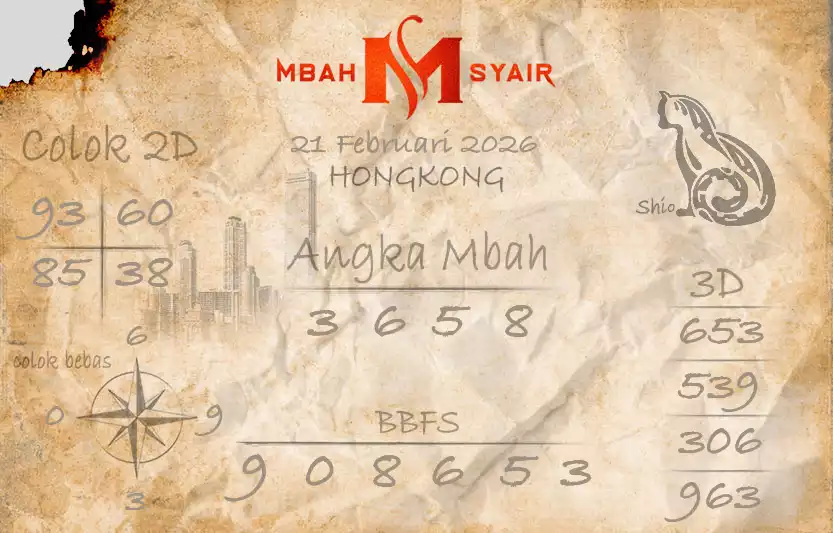 MBAH M SYAIR
21 Februari 2026
HONGKONG
Colok 2D
93 60
85 38
Shio
Angka Mbah
3 6 5 8
3D
653
539
306
963
colok bebas
6
0 9
3
BBFS
9 0 8 6 5 3